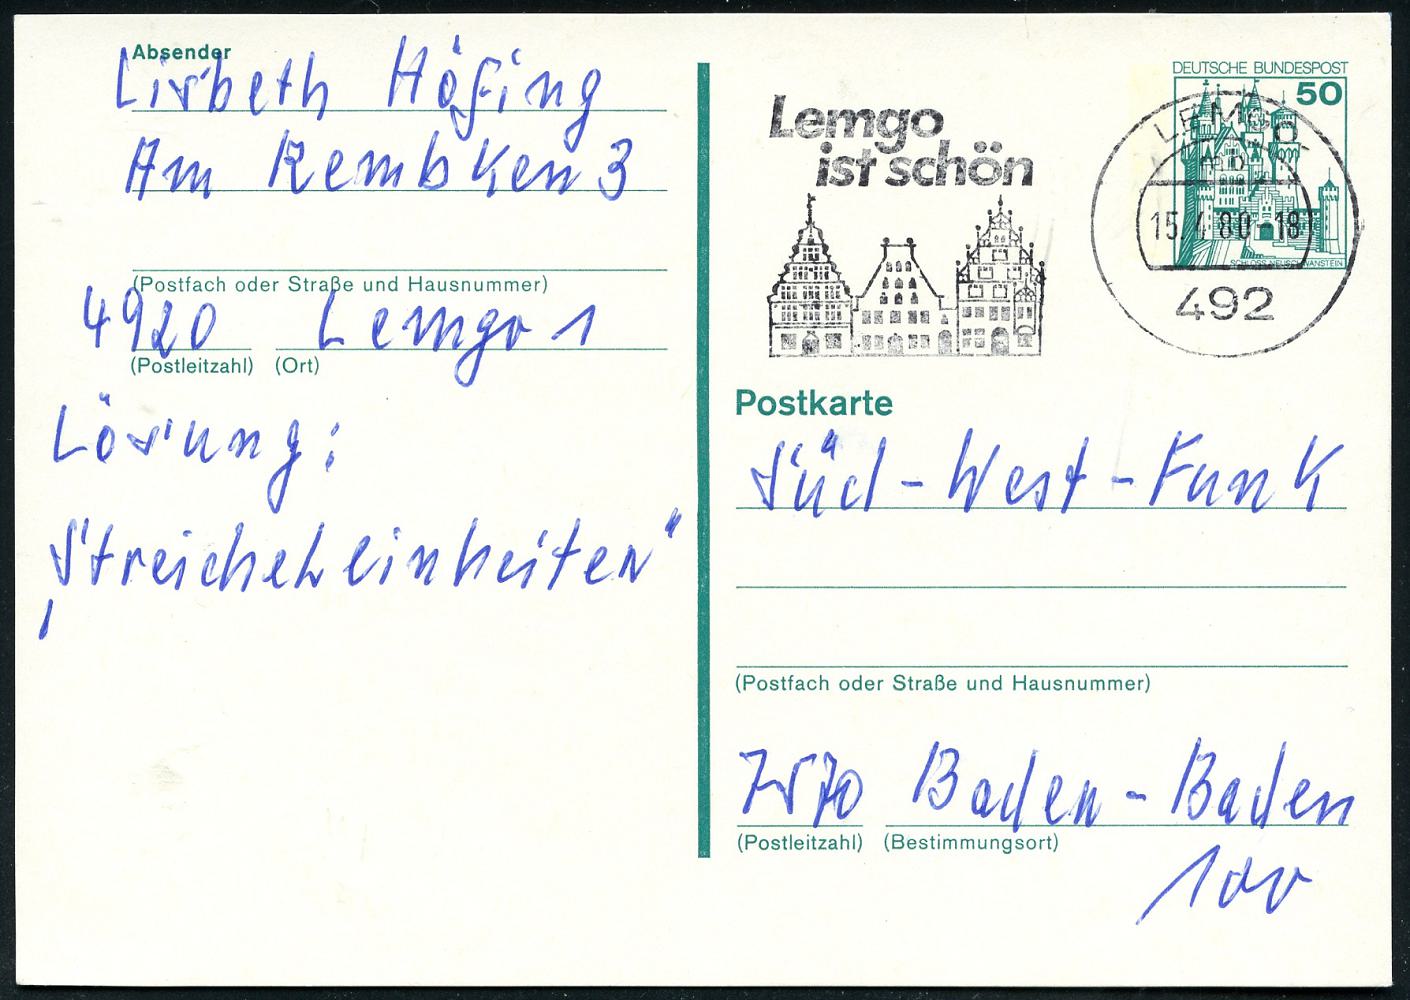 Absender
Lisbeth Höfing
Am Rembken 3
(Postfach oder Straße und Hausnummer)
4920 Lemgo 1
(Postleitzahl) (Ort)
Lösung:
„Streicheleinheiten“
Lemgo
ist schön
DEUTSCHE BUNDESPOST
50
SCHLOSS NEUSCHWANSTEIN
LEMGO
15.4.80-18
492
Postkarte
Süd-West-Funk
(Postfach oder Straße und Hausnummer)
7570 Baden-Baden
(Postleitzahl) (Bestimmungsort)
100